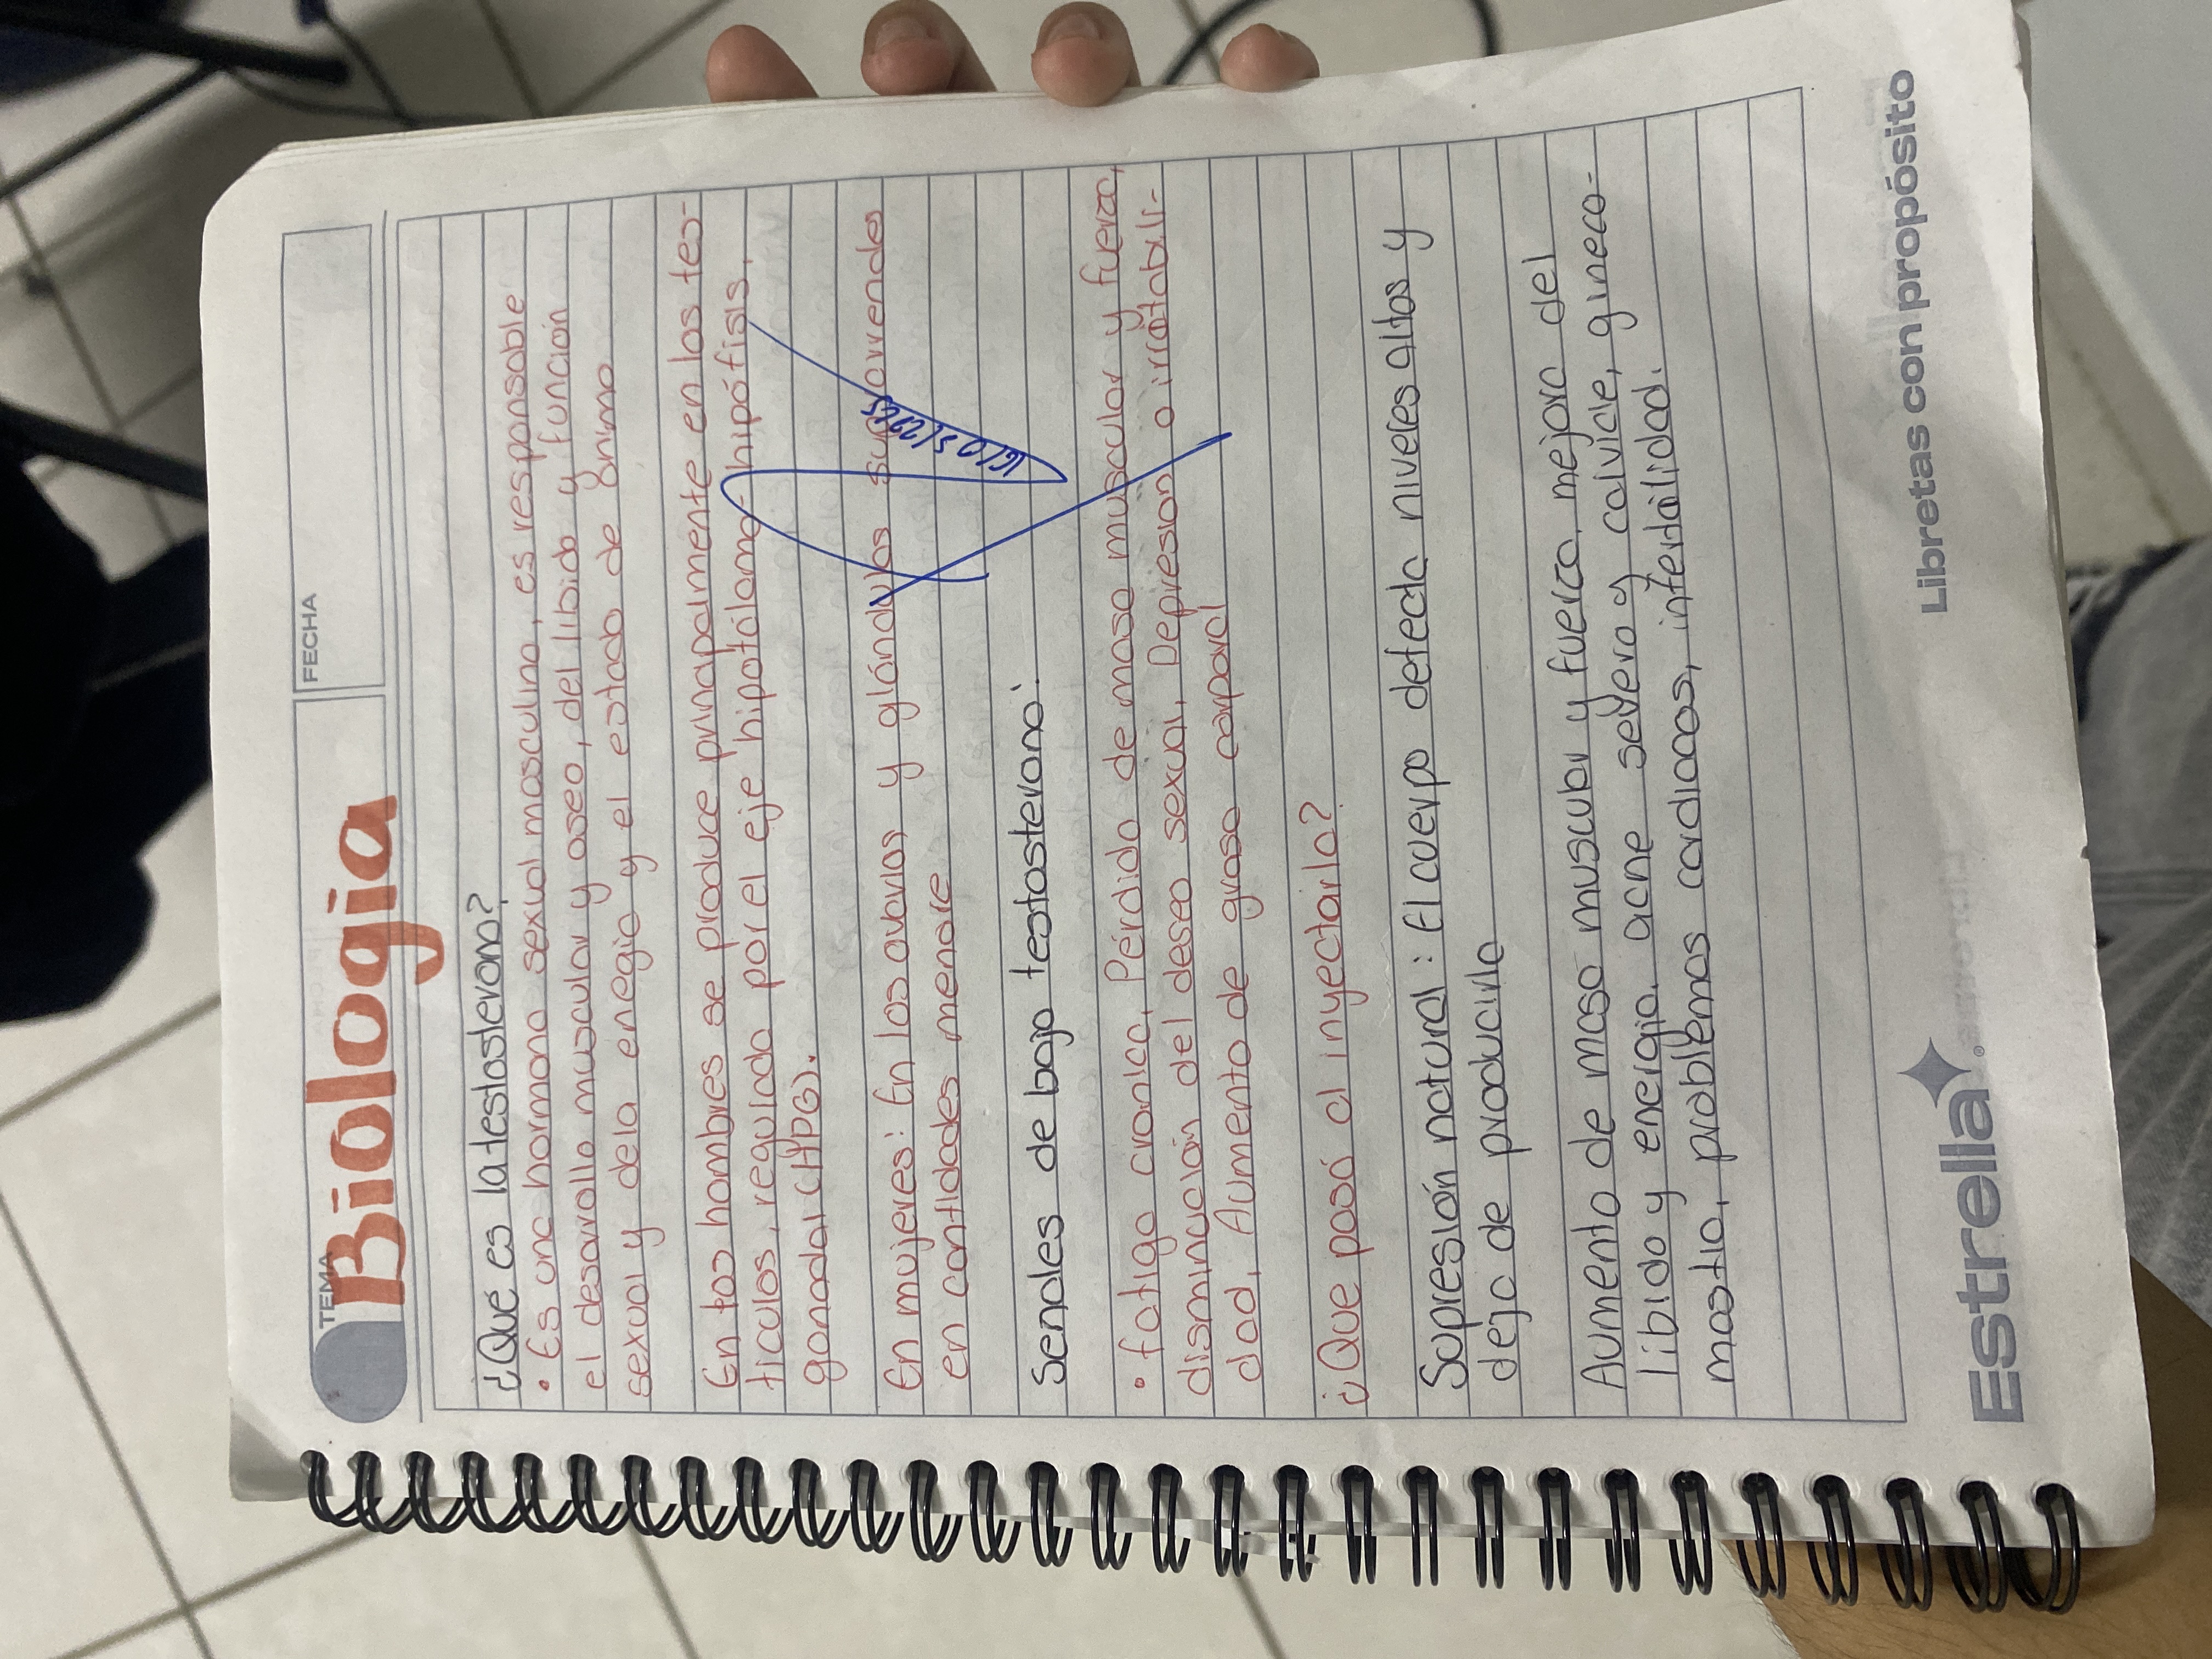 TEMA
Biologia
FECHA
¿Que es la testosterona?
• Es una hormona sexual masculina, es responsable
el desarrollo muscular y oseo, del libido y función
sexual y dela energia y el estado de ánimo
En los hombres se produce principalmente en los tes-
ticulos, regulada por el eje hipotálamo-hipófisis,
gonadal (HPG).
En mujeres: En los ovarios y glándulas suprarrendes
en cantidades menore
Senales de baja testosterona:
• fatiga cronica, Perdida de masa muscular y fuerza,
disminución del deseo sexual, Depresion o irritabili-
dad, Aumento de grasa corporal
¿Que pasa al inyectarla?
Supresión natural: El cuerpo detecta niveles altos y
deja de producirla
Aumento de masa muscular y fuerza, mejora del
libido y energia, acne severo y calvicie, gineco-
mastia, problemas cardiacos, infertilidad.
Estrella®
Libretas con propósito